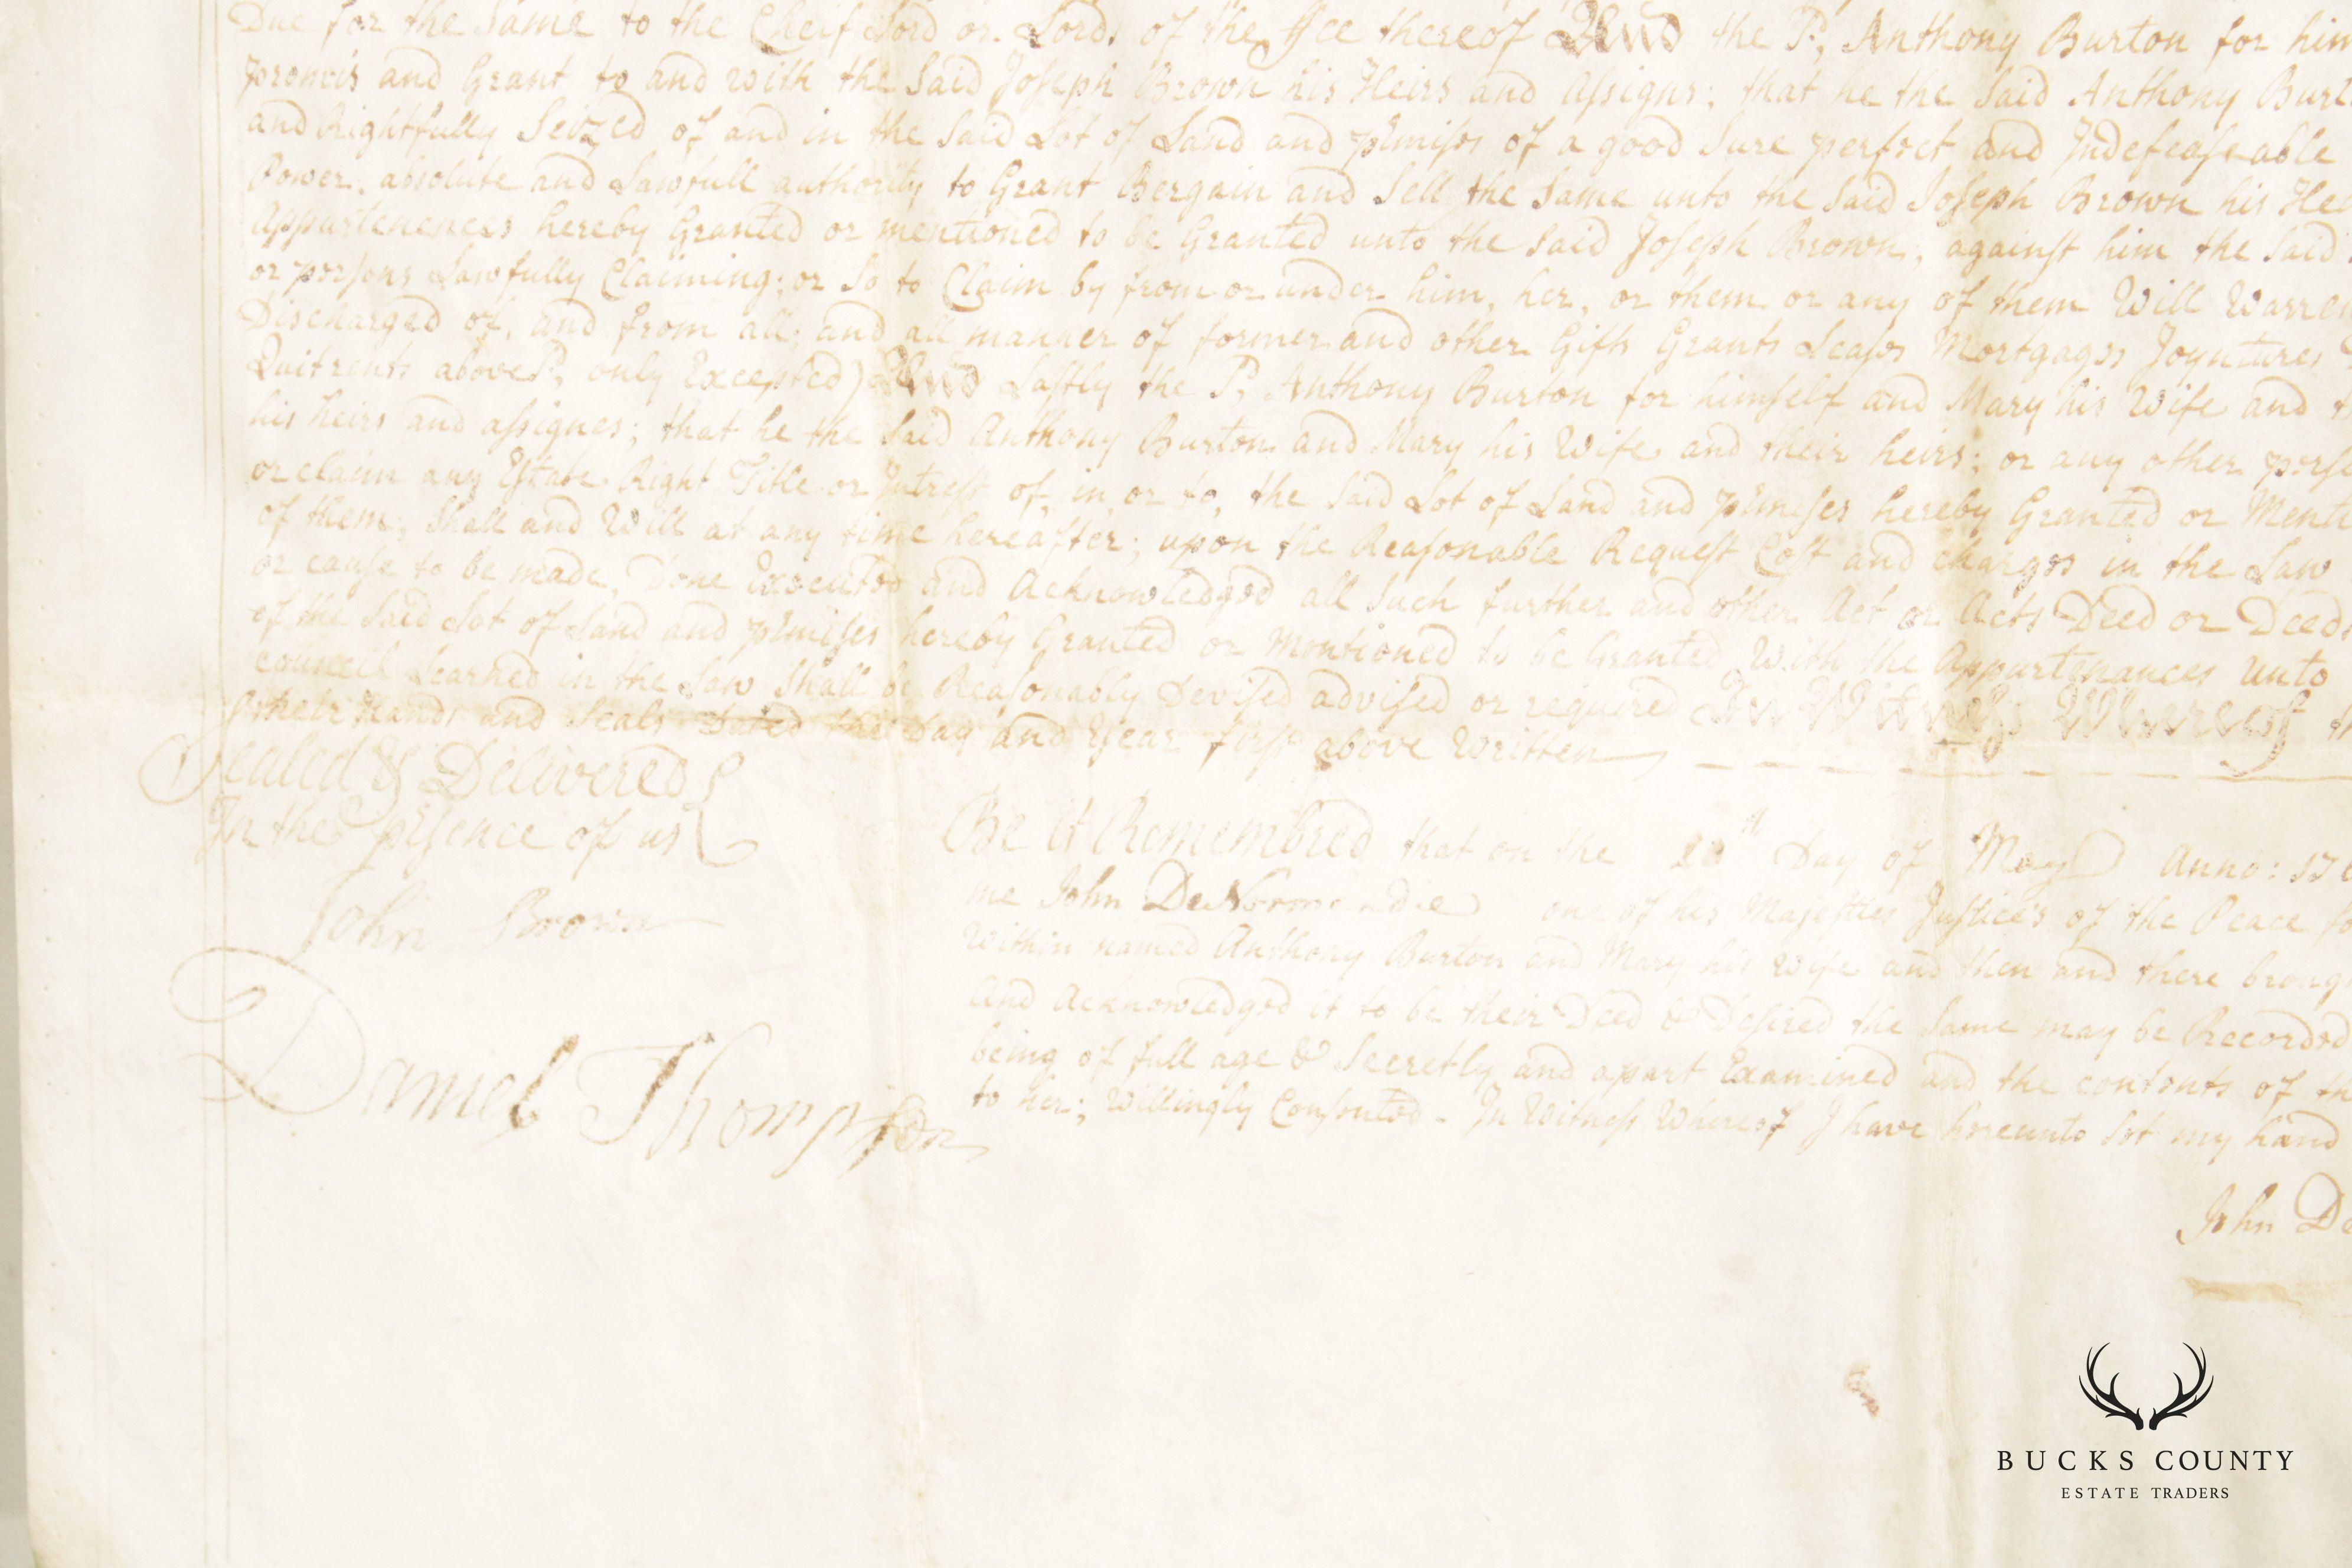 Due for the Same to the Cheif Lord or Lords of the ffee thereof And the Sd. Anthony Burton for him
promis and Grant to and with the Said Joseph Brown his Heirs and Assigns; that he the Said Anthony Burt
and Rightfully Seized of and in the Said Lot of Land and p'mises of a good Sure perfect and Indefeaseable
Power, absolute and Lawfull authority to Grant Bergain and Sell the Same unto the Said Joseph Brown his Hei
Appurtenences hereby Granted or mentioned to be Granted unto the Said Joseph Brown; against him the Said
or persons Lawfully Claiming; or So to Claim by from or under him, her, or them or any of them Will Warren
Discharged of, and from all; and all manner of former and other Gifts Grants Leases Mortgages Joyntures
Quitrents above Sd. only Excepted) And Lastly the Sd. Anthony Burton for himself and Mary his Wife and t
his heirs and assignes; that he the Said Anthony Burton and Mary his Wife and their heirs; or any other pers
or claim any Estate Right Title or Intrest of, in, or to, the Said Lot of Land and p'mises hereby Granted or Menti
of them; Shall and Will at any time hereafter; upon the Reasonable Request Cost and charges in the Law
or cause to be made, Done Executed and Acknowledged all Such further and other Act or Acts Deed or Deeds
of the Said Lot of Land and p'mises hereby Granted or Mentioned to be Granted With the Appurtenances unto
councill Learned in the Law Shall be Reasonably Devised advised or required In Witness Whereof th
their Hands and Seals Dated the Day and Year first above Written
Sealed & Delivered
In the p'sence of us
John Brown
Daniel Thompson
Be it Remembred that on the 20th Day of May Anno: 17
me John DeNormandie one of his Majesties Justices of the Peace fo
within named Anthony Burton and Mary his Wife and then and there broug
and Acknowledged it to be their Deed & Desired the Same may be Recorded
being of full age & Secretly and apart Examined and the contents of th
to her; willingly Consented - In Witness Whereof I have hereunto Set my hand
John De
BUCKS COUNTY
ESTATE TRADERS